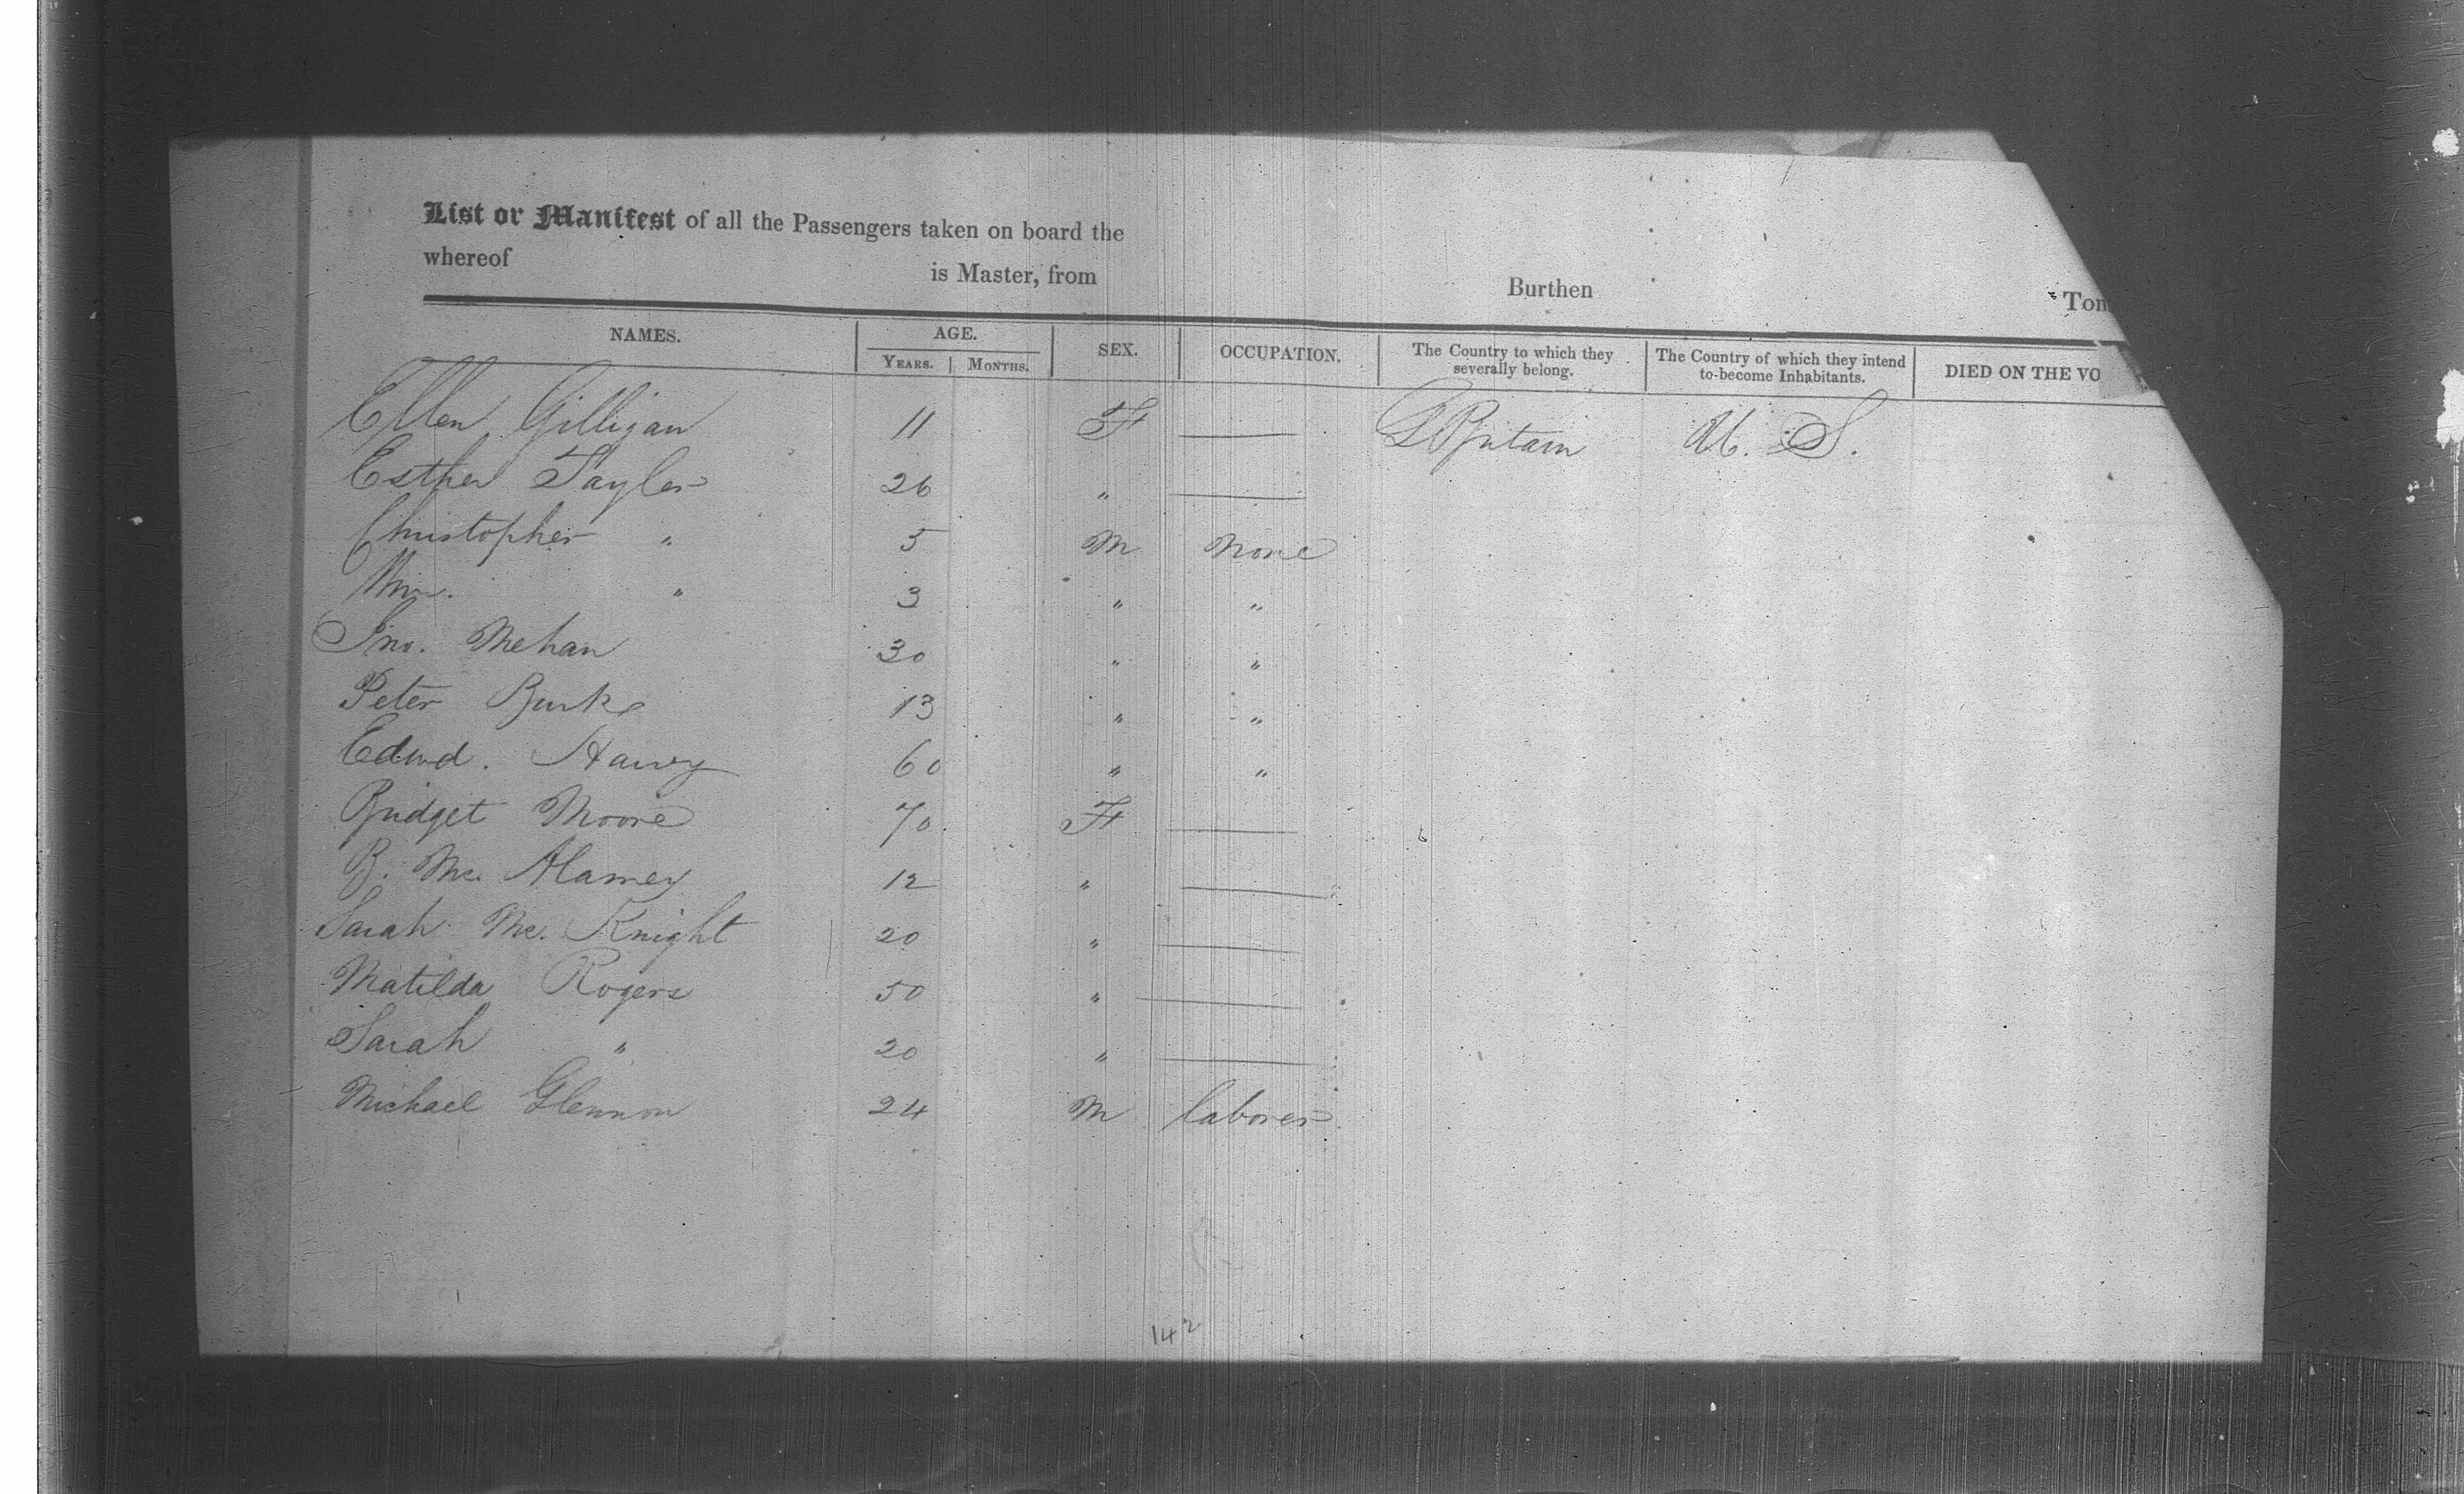 List or Manifest of all the Passengers taken on board the
whereof is Master, from Burthen Ton
NAMES. AGE. SEX. OCCUPATION. The Country to which they severally belong. The Country of which they intend to become Inhabitants. DIED ON THE VO
YEARS. MONTHS.
Ellen Gilligan 11 F — G Britain U. S.
Esther Taylor 26 " —
Christopher " 5 M none
Wm. " 3 " "
Jno. Mehan 30 " "
Peter Burke 13 " "
Edwd. Harvey 60 " "
Bridget Moore 70 F —
B. Mc 12 " —
Sarah Mc. Knight 20 " —
Matilda Rogers 50 " —
Sarah " 20 " —
Michael Glennon 24 M laborer
142